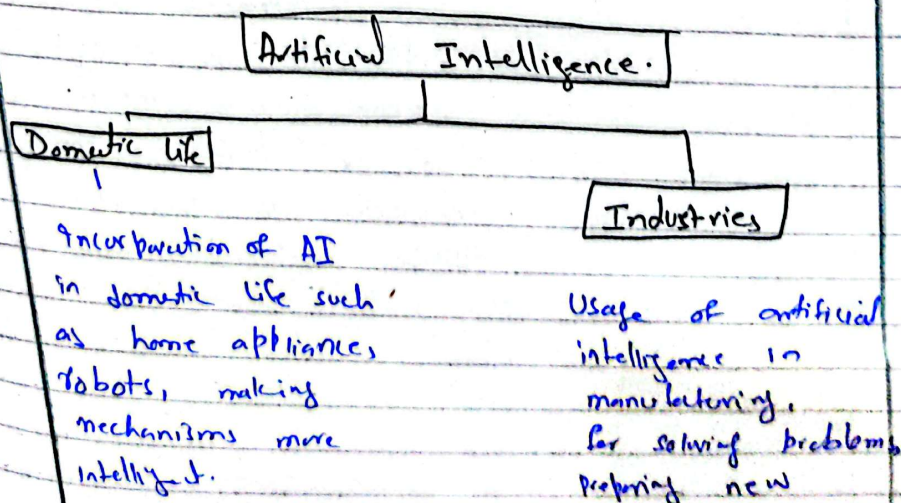 Artificial Intelligence.
Domestic life
Industries
Incorporation of AI
in domestic life such
as home appliances,
robots, making
mechanisms more
intelligent.
Usage of artificial
intelligence in
manufacturing,
for solving problems,
preparing new